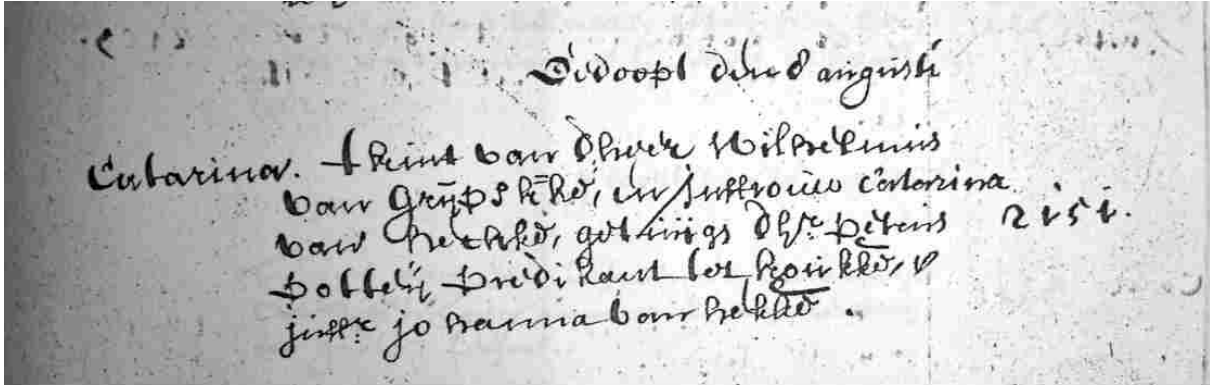 Gedoopt den 8 augusti
Catarina. t kint van Dheer Wilhelmus
van Grijpskke, en Juffrouw Catarina
van hekke, getuijgs Dhr. petrus 2151.
potteij predikant tot koukke,
juffr. johanna van hekke.